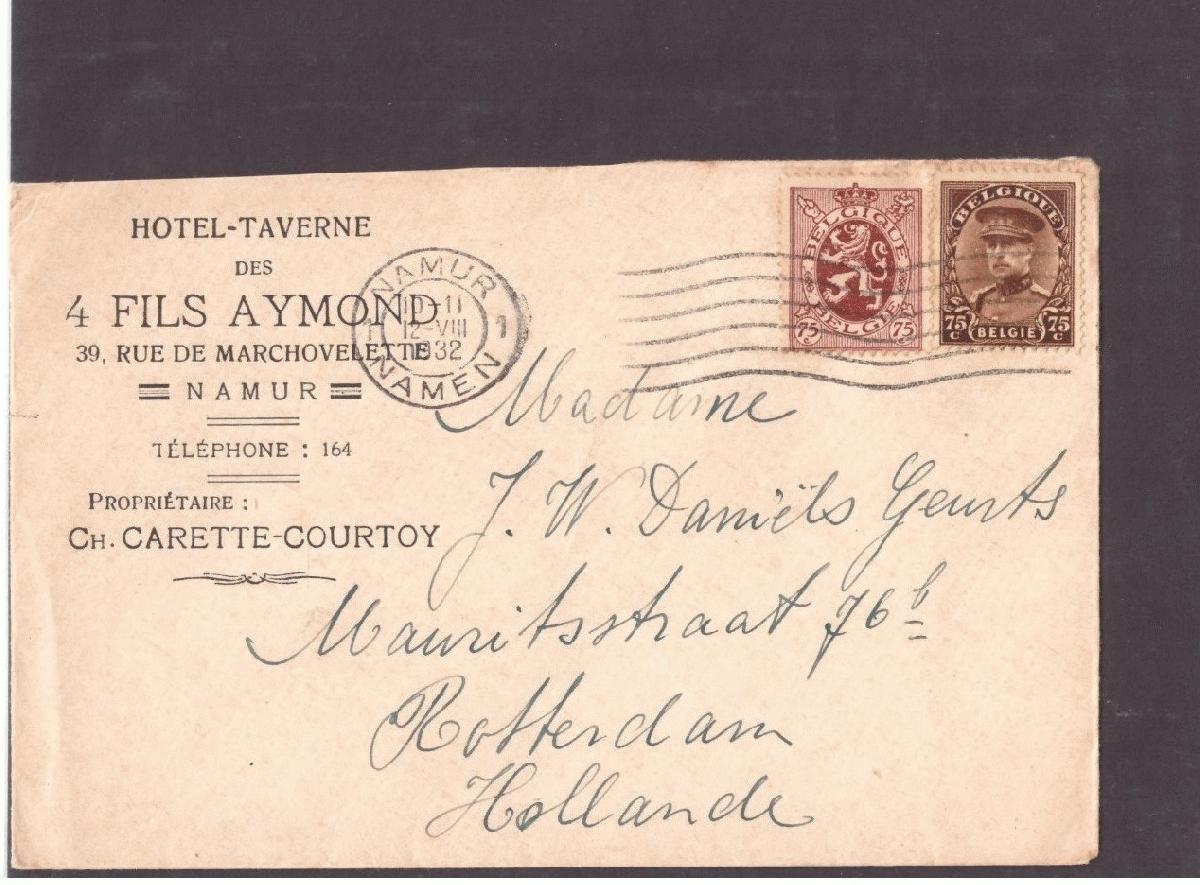 HOTEL-TAVERNE
DES
4 FILS AYMOND
39, RUE DE MARCHOVELETTE
NAMUR
TÉLÉPHONE : 164
PROPRIÉTAIRE :
CH. CARETTE-COURTOY
NAMUR 1
10-11
12-VIII
1932
NAMEN
BELGIQUE
75 75
BELGIË
BELGIQUE
75 C 75 C
BELGIË
Madame
J. W. Daniëls Geurts
Mauritsstraat 76 b
Rotterdam
Hollande